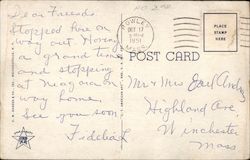 Dear Friends
Stopped here on
way out. Having
a grand time
and stopping
at Niagara on
way home.
See you soon
ROWLEY
OCT 17
1951
MASS.
PLACE
STAMP
HERE
POST CARD
Mr & Mrs Earl
Highland Ave
Winchester
Mass